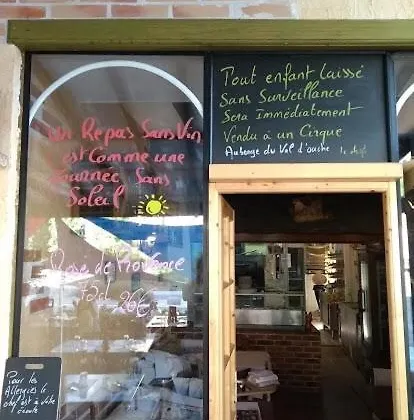 Un Repas Sans Vin
est Comme une
Journée Sans
Soleil
Rose de Provence
75cl 26€
Tout enfant laissé
Sans Surveillance
Sera Immédiatement
Vendu à un Cirque
Auberge du Val d'ouche le chef
Pour les
Allergies le
chef est à votre
écoute